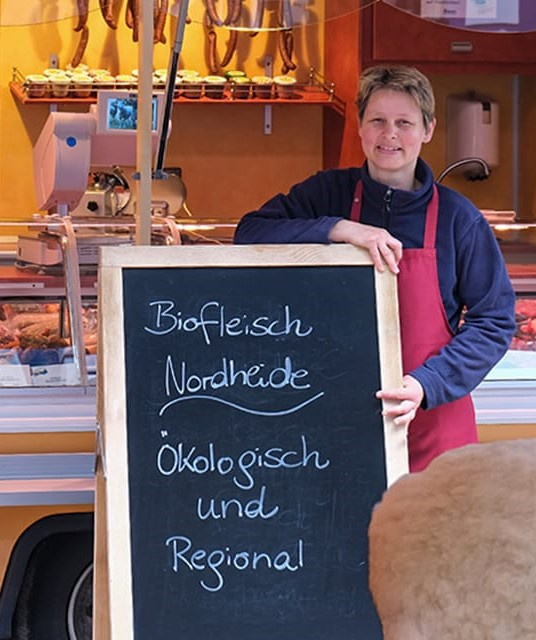 Biofleisch
Nordheide
Ökologisch
und
Regional